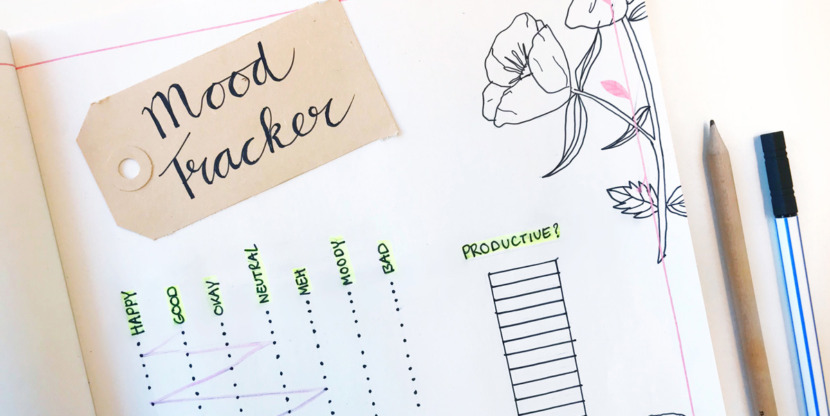 Mood
Tracker
HAPPY
GOOD
OKAY
NEUTRAL
MEH
MOODY
BAD
PRODUCTIVE?